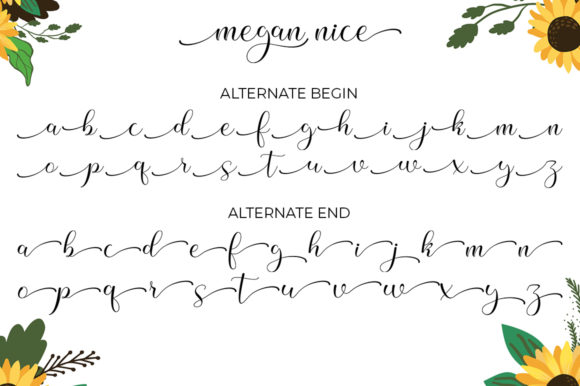 megan nice
ALTERNATE BEGIN
a b c d e f g h i j k m n
o p q r s t u v w x y z
ALTERNATE END
a b c d e f g h i j k m n
o p q r s t u v w x y z